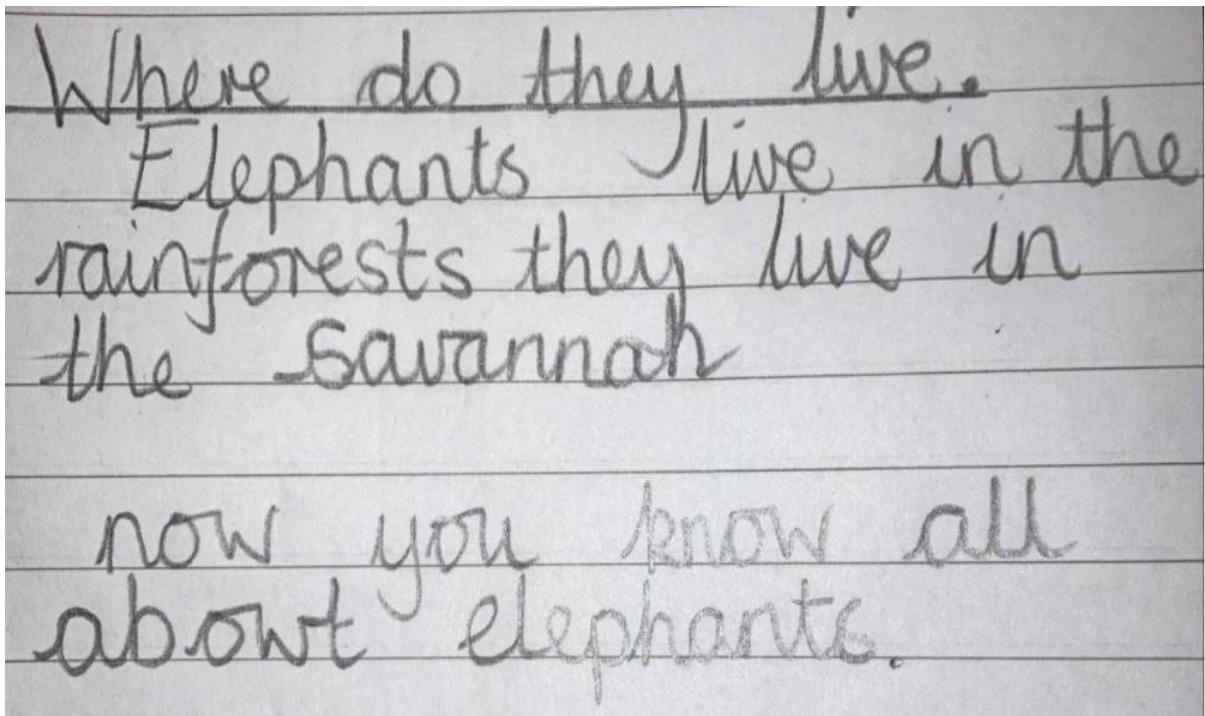 Where do they live.
Elephants live in the
rainforests they live in
the savannah
now you know all
abowt elephants.